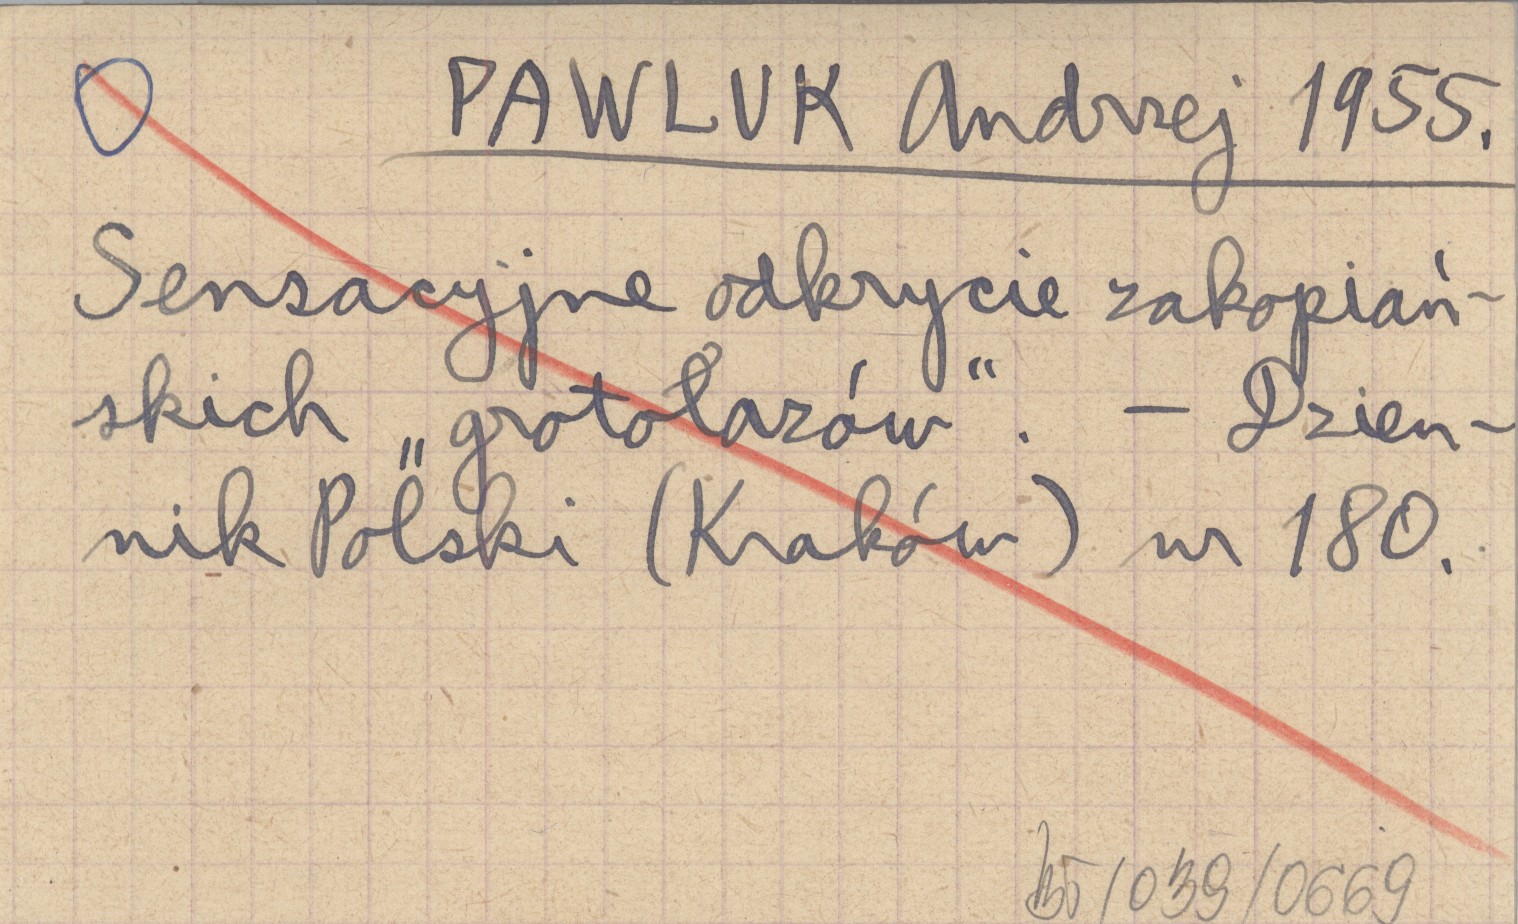 PAWLUK Andrzej 1955.
Sensacyjne odkrycie zakopiań-
skich „grotołazów“. – Dzien-
nik Polski (Kraków) nr 180.
/039/0669